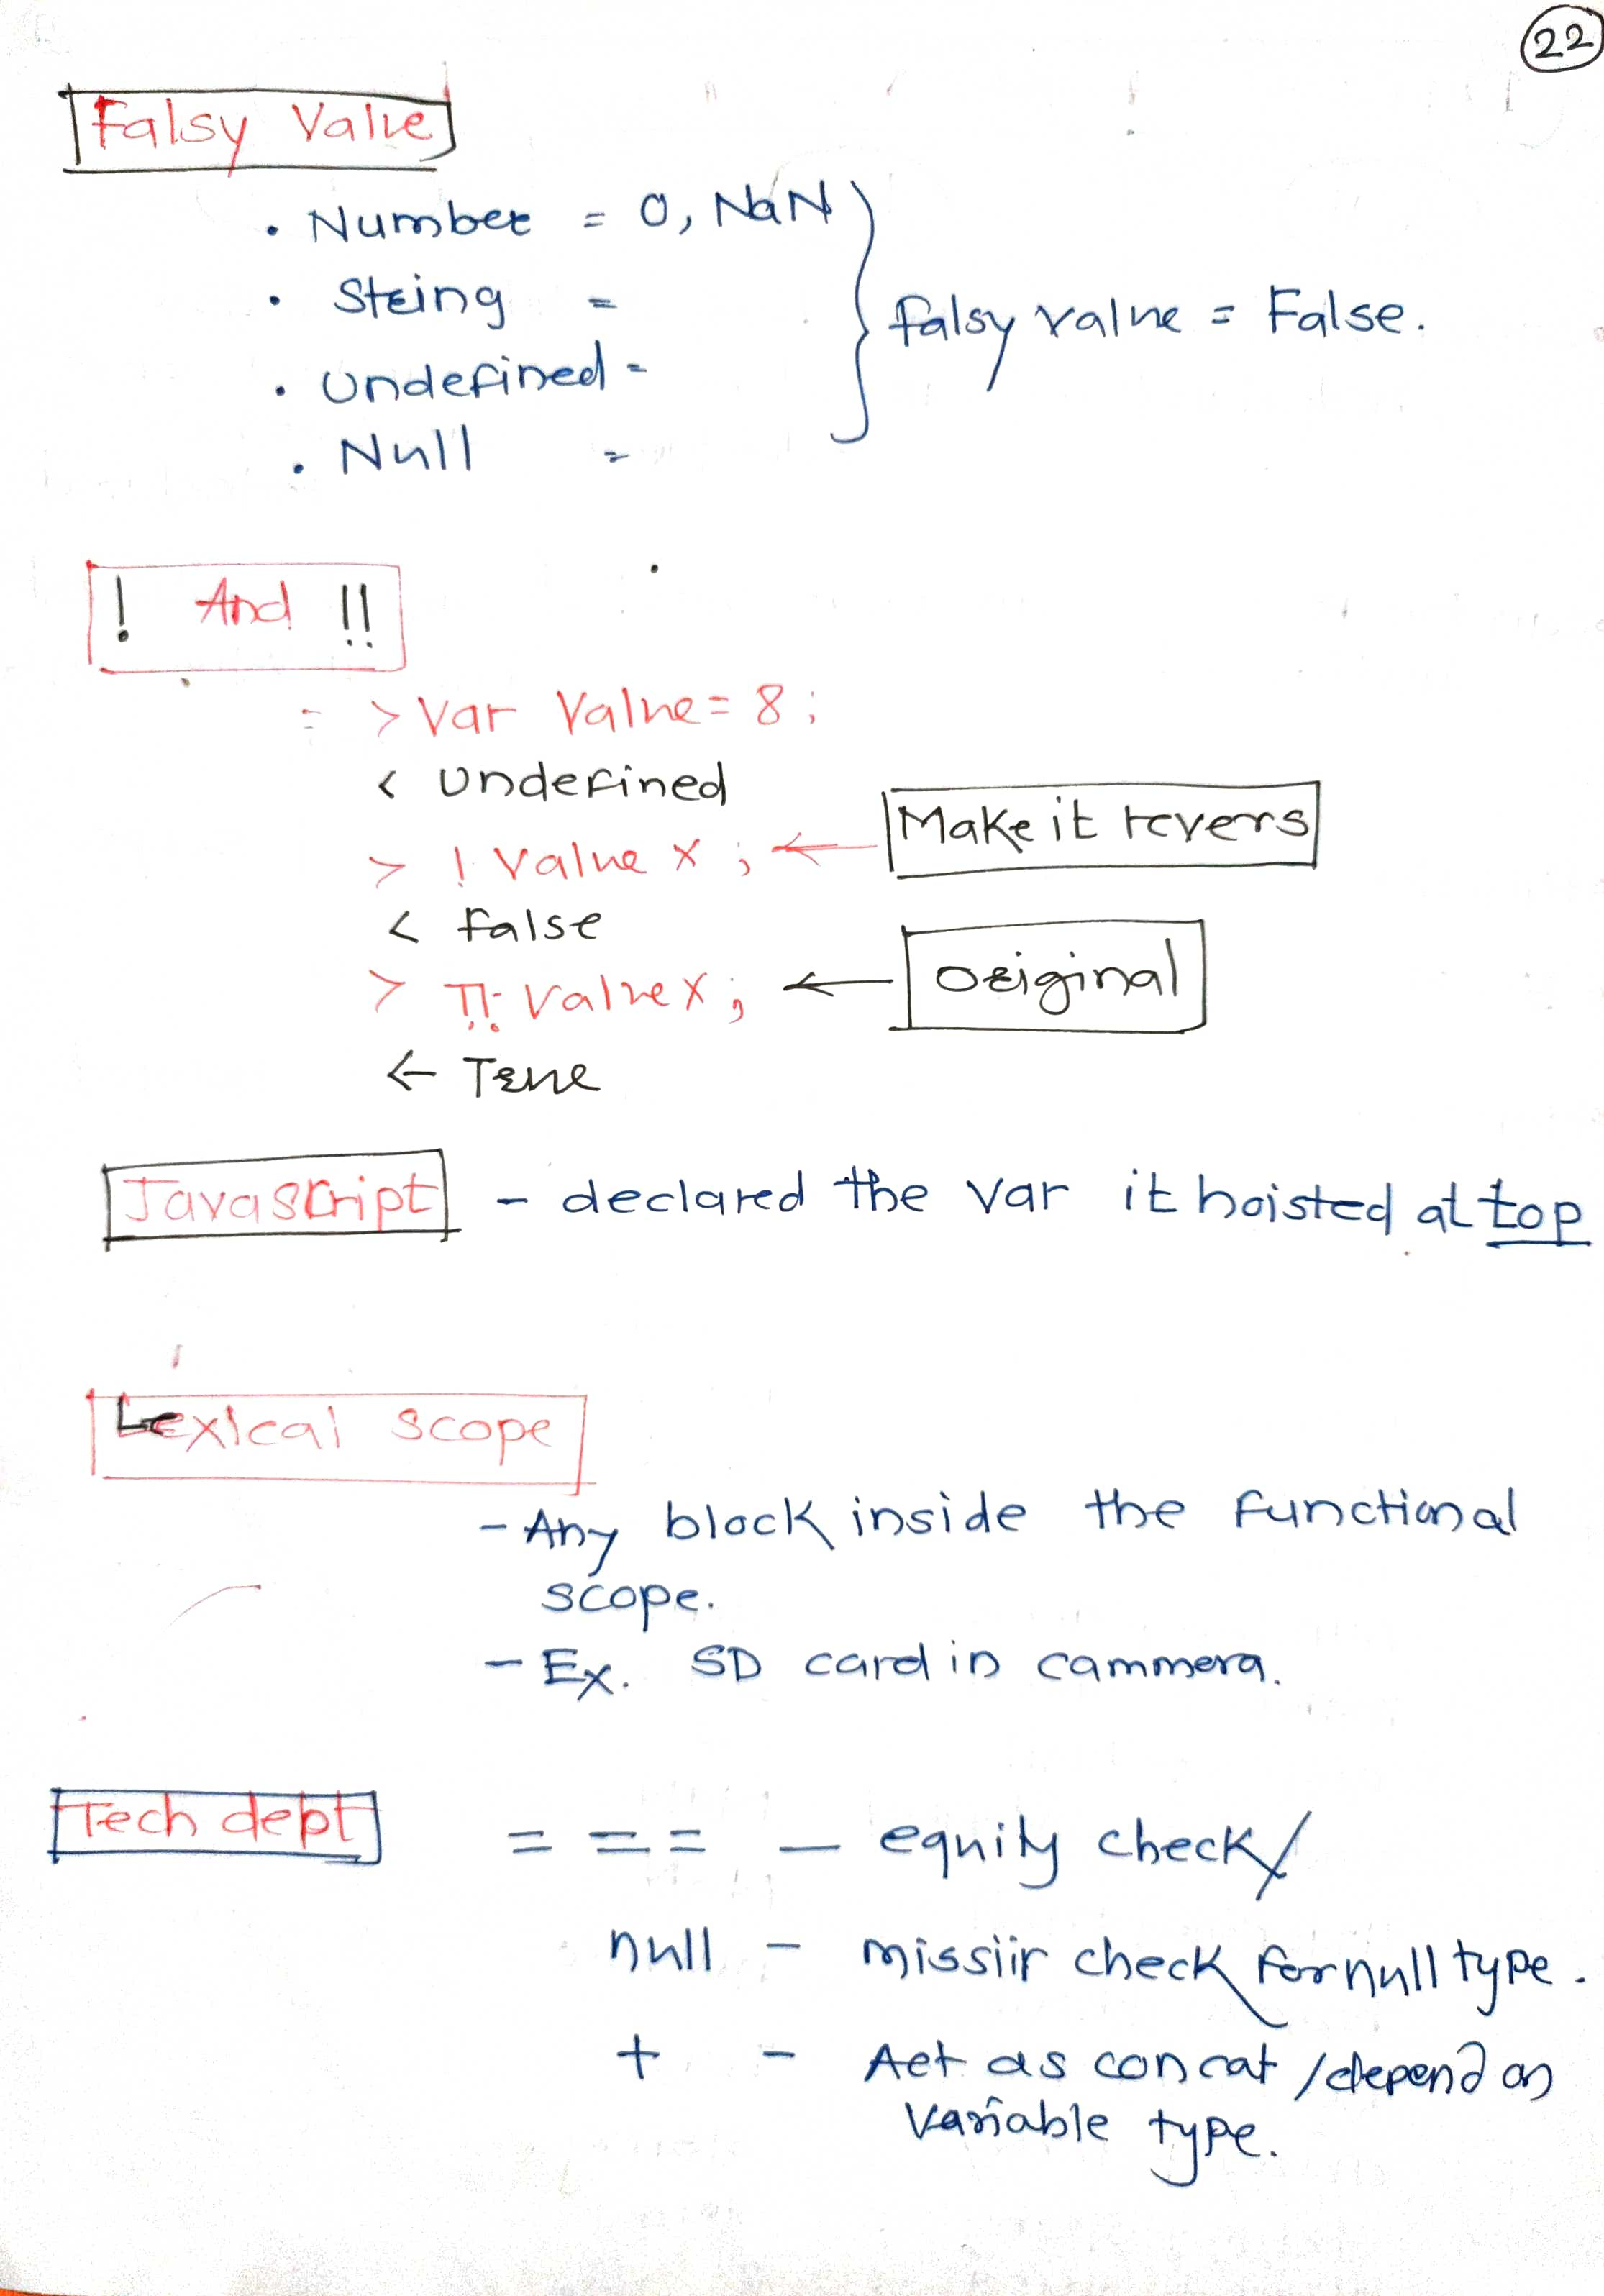 22
Falsy Value
• Number = 0, NaN
• String =
• Undefined =
• Null =
falsy value = False.
! And !!
= > Var Value = 8 ;
< Undefined
> ! Value x ; ← Make it revers
< false
> !! Value x ; ← Original
← True
Javascript - declared the var it hoisted at top
Lexical scope
- Any block inside the functional
scope.
- Ex. SD card in cammera.
Tech dept = = = — equity check/
null - check for null type.
+ - Act as concat / depend on
variable type.